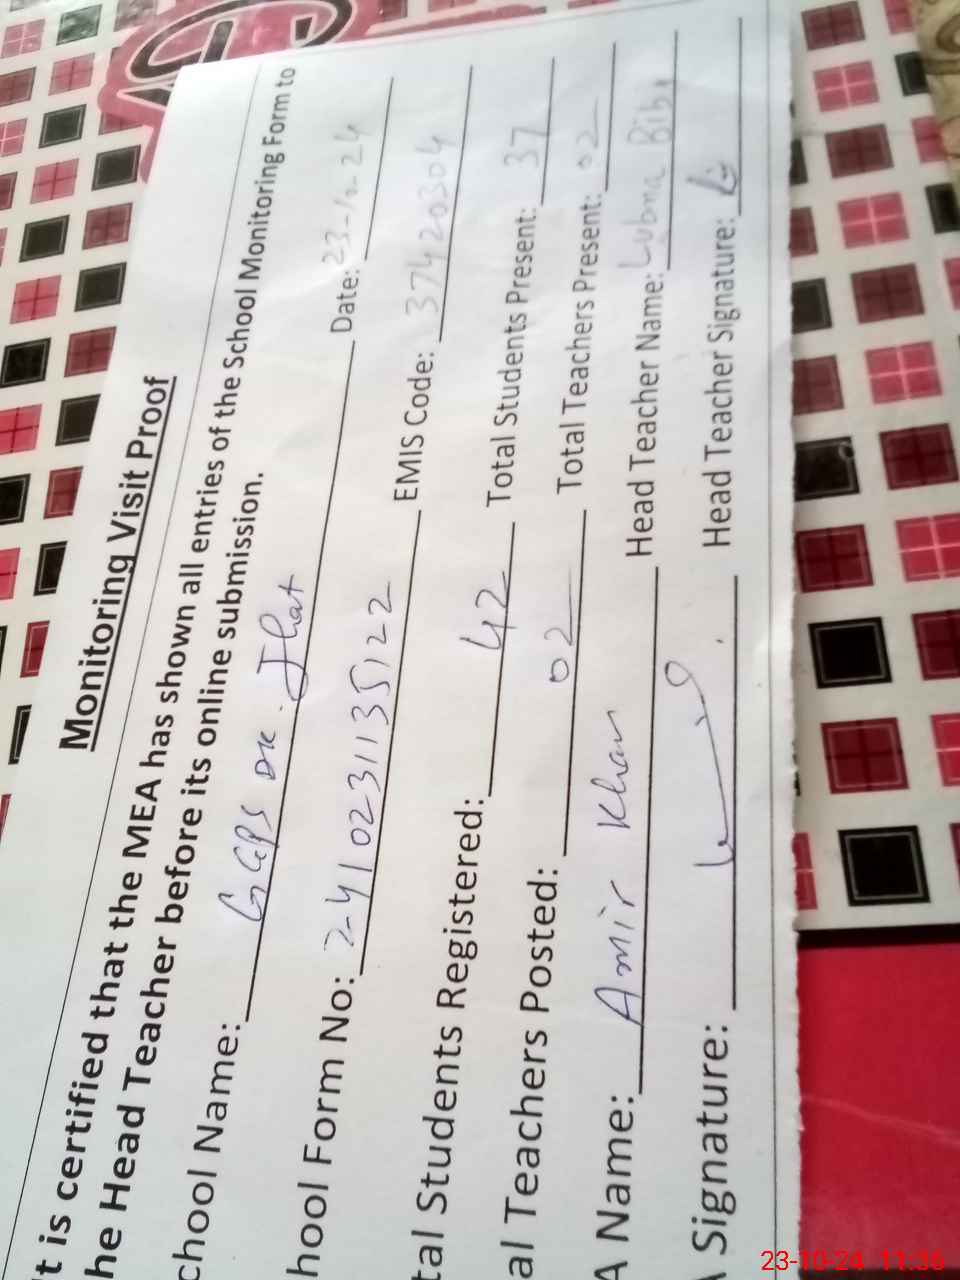 Monitoring Visit Proof
t is certified that the MEA has shown all entries of the School Monitoring Form to
he Head Teacher before its online submission.
chool Name: GGPS DK. Jhat Date: 23-10-24
hool Form No: 2410231135122 EMIS Code: 37420304
tal Students Registered: 42 Total Students Present: 37
al Teachers Posted: 02 Total Teachers Present: 02
A Name: Amir Khan Head Teacher Name: Lubna Bibi
Signature: Head Teacher Signature:
23-10-24 11:36